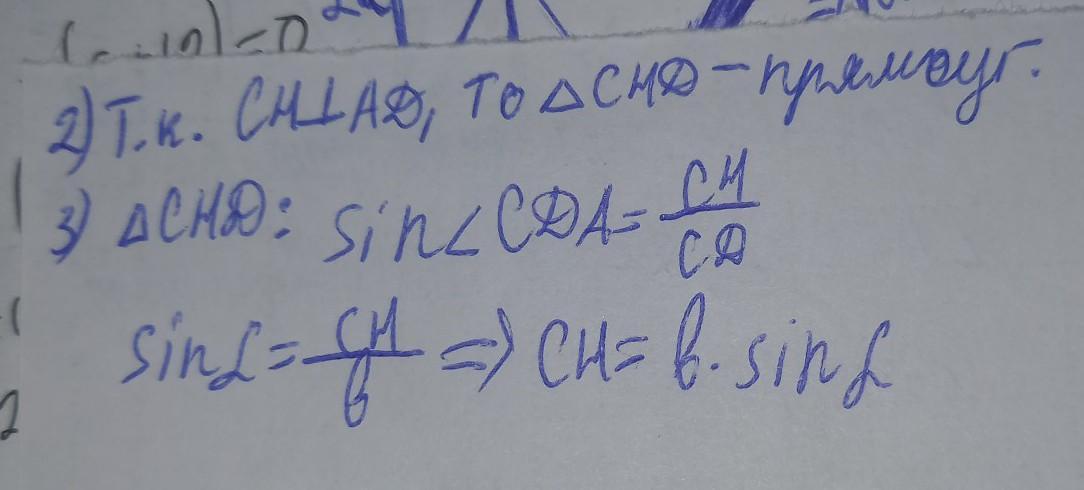 2) Т.к. CH⊥AD, то △CHD - прямоуг.
3) △CHD: sin∠CDA = CH/CD
sinα = CH/b => CH = b · sinα